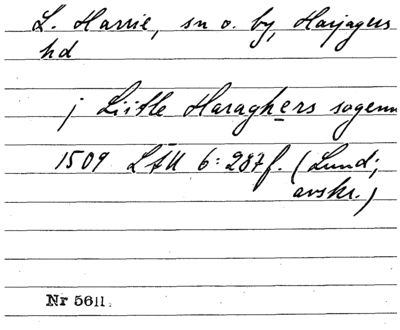 L. Harrie, sn o. by, Harjagers
hd
j Liitle Haraghers sogenn
1509 LÄU 6: 287 f. (Lund;
avskr.)
Nr 5611.